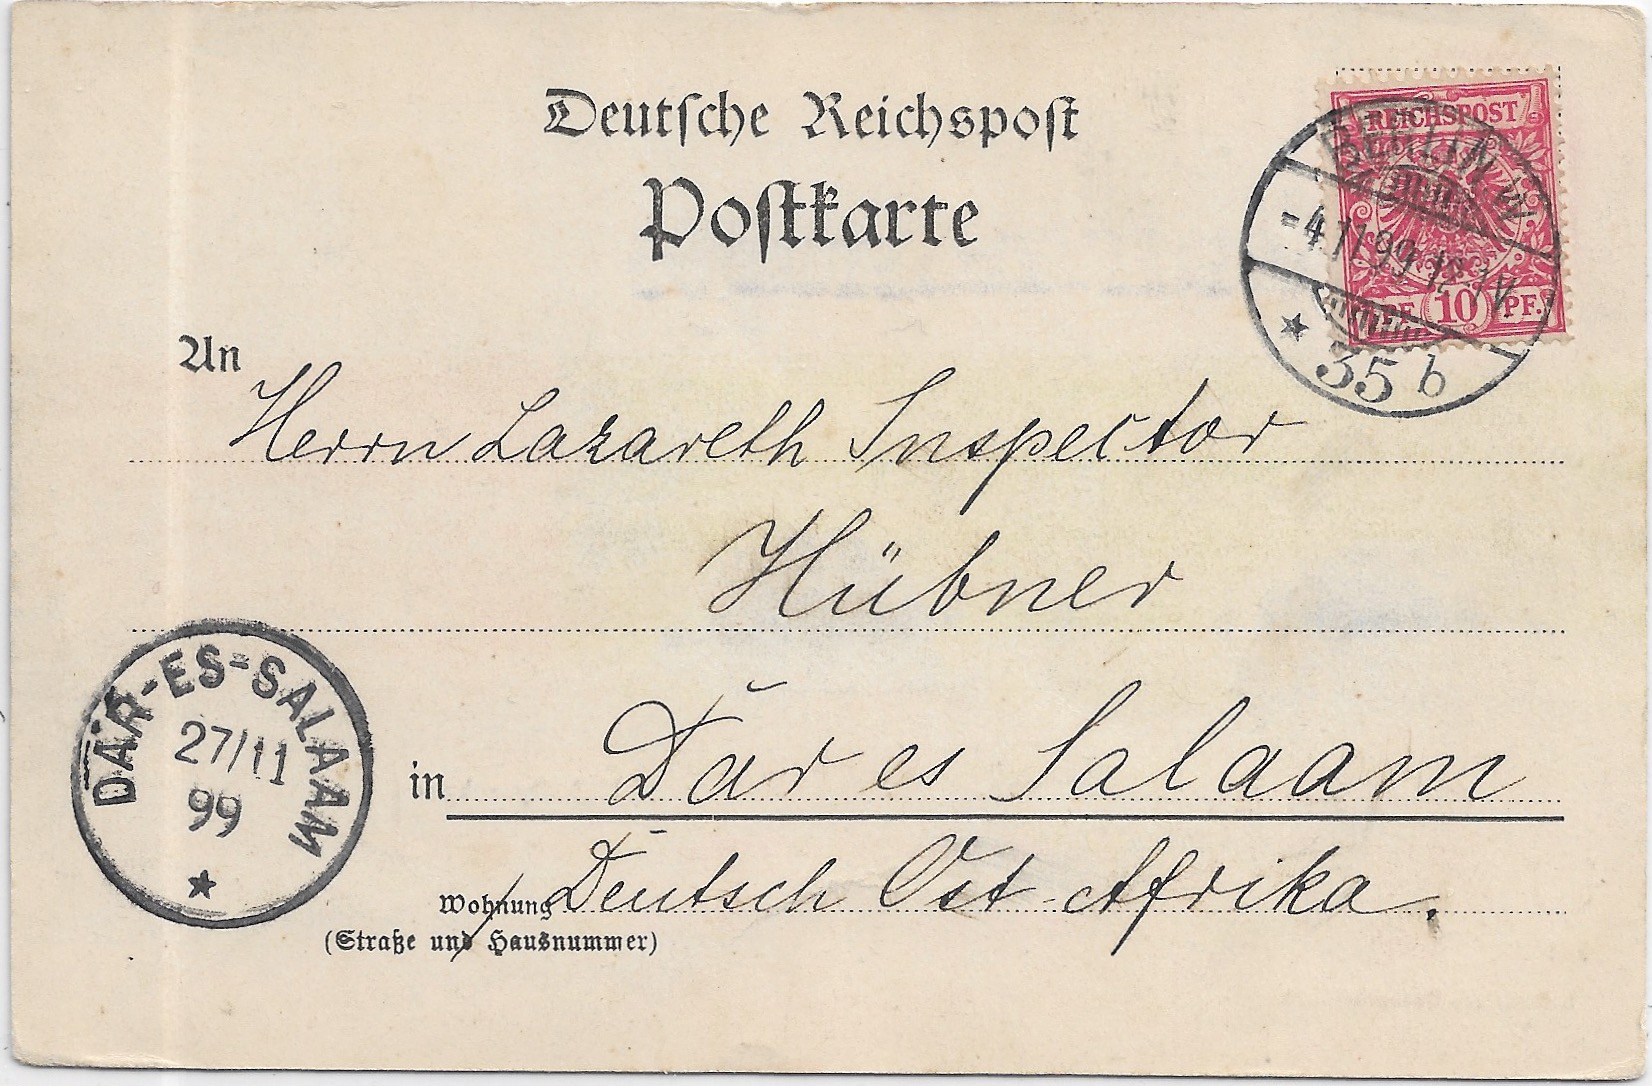 Deutsche Reichspost
Postkarte
REICHSPOST
PF. 10 PF.
BERLIN W
-4.11.99.12-1V.
* 35 b
An
Herrn Lazareth Inspector
Hübner
DAR-ES-SALAAM
27/11
99
*
in Dar es Salaam
Wohnung Deutsch Ost-Afrika.
(Straße und Hausnummer)